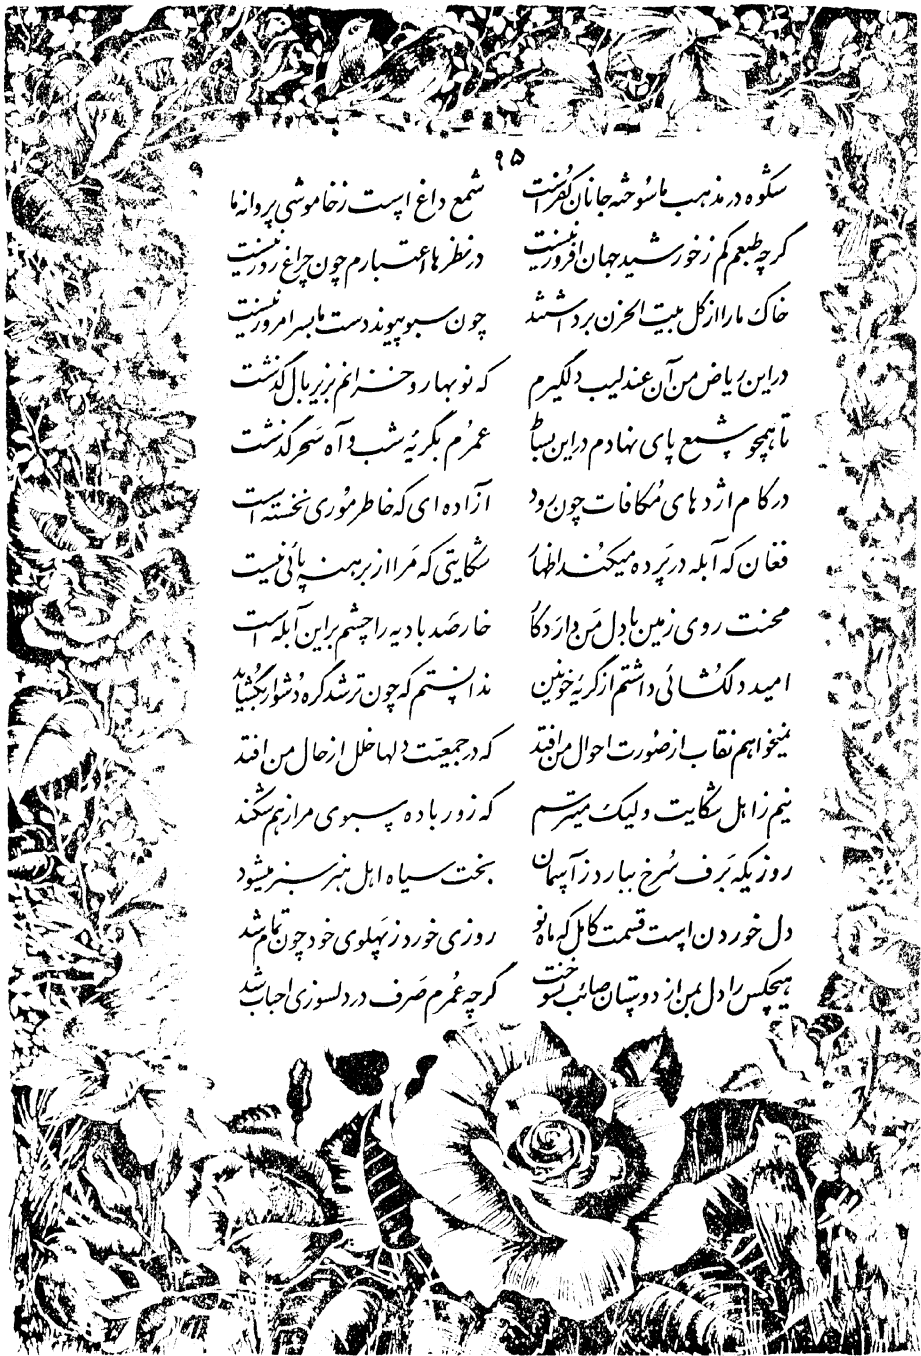 ۹۵
شکوه در مذهب ما سوخته جانان کفرست شمع داغ است ز خاموشی پروانه ما
گرچه طبعم کم ز خورشید جهان افروز نیست در نظرها اعتبارم چون چراغ روز نیست
خاک ما را از گل بیت الحزن برداشتند چون سبو پیوند دست ما بسر امروز نیست
در این ریاض من آن عندلیب دلگیرم که نوبهار و خزانم بزیر بال گذشت
تا همچو شمع پای نهادم در این بساط عمرم بگریهٔ شب و آه سحر گذشت
در کام اژدهای مکافات چون رود آزاده ای که خاطر موری نخسته است
فغان که آبله در پرده میکند اظهار شکایتی که مرا از برهنه پائی نیست
محنت روی زمین با دل من دارد کار خار صد بادیه را چشم براین آبله است
امید دلگشائی داشتم از گریهٔ خونین ندانستم که چون تر شد گره دشوار بگشاید
نمیخواهم نقاب از صورت احوال من افتد که در جمعیت دلها خلل از حال من افتد
نیم ز اهل شکایت ولیک میترسم که زور باده سبوی مرا ز هم شکند
روزیکه برف سرخ ببارد ز آسمان بخت سیاه اهل هنر سبز میشود
دل خوردن است قسمت کامل که ماه نو روزی خورد ز پهلوی خود چون تمام شد
هیچکس را دل بمن از دوستان صائب نسوخت گرچه عمرم صرف در دلسوزی احباب شد